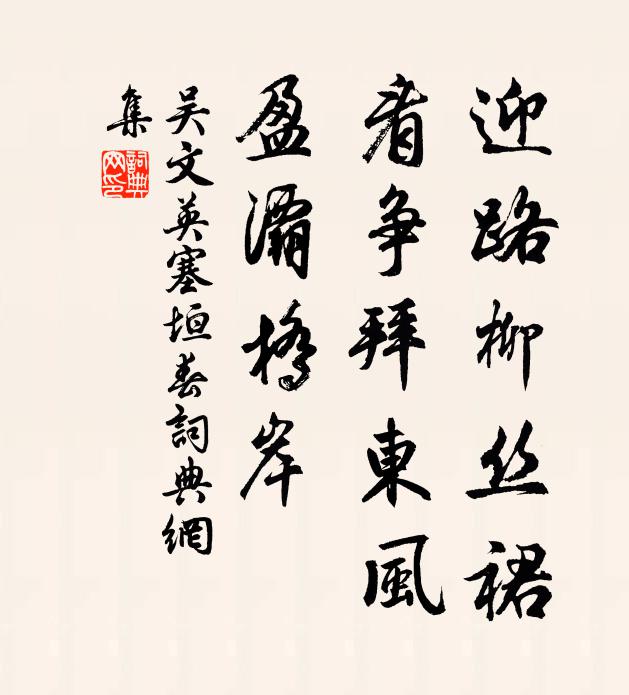 迎路柳丝裙
看争拜東風
盈灞橋岸
吴文英塞垣春詞典網
集
詞典网印